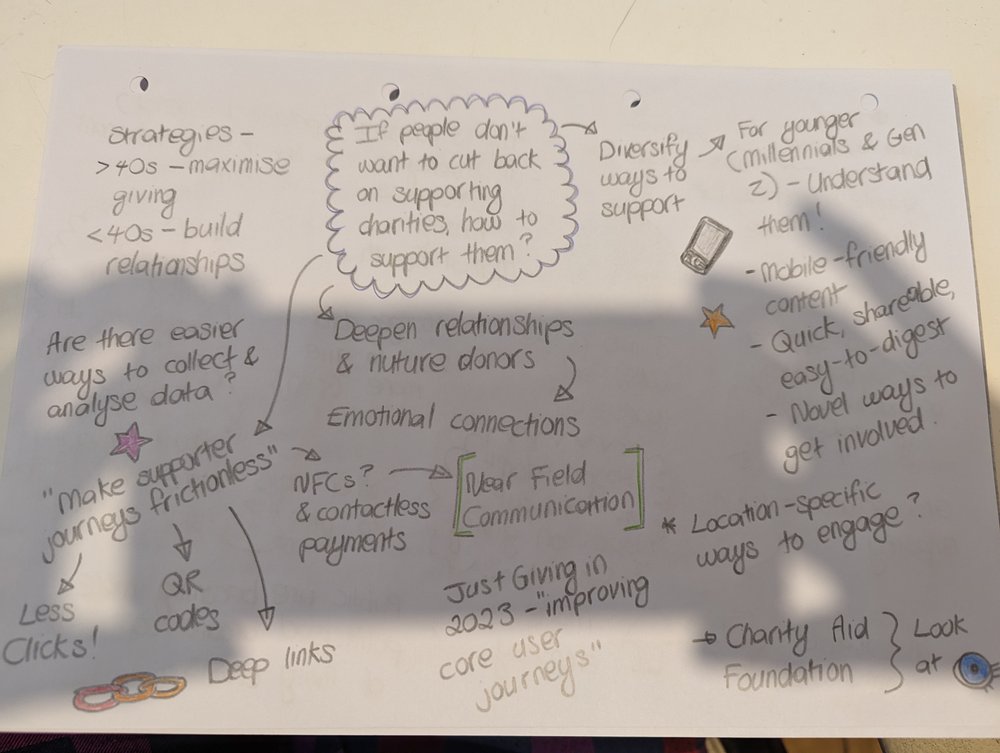 Strategies -
>40s - maximise
giving
<40s - build
relationships
If people don't
want to cut back
on supporting
charities, how to
support them?
Diversify
ways to
support
For younger
(millennials & Gen
Z) - Understand
them!
- Mobile-friendly
content
- Quick, shareable,
easy-to-digest
- Novel ways to
get involved.
Are there easier
ways to collect &
analyse data?
Deepen relationships
& nuture donors
Emotional connections
"Make supporter
journeys frictionless"
NFCs?
& contactless
payments
[Near Field
Communication]
* Location-specific
ways to engage?
Less
Clicks!
QR
codes
Deep links
Just Giving in
2023 - "improving
core user
journeys"
Charity Aid
Foundation
Look
at